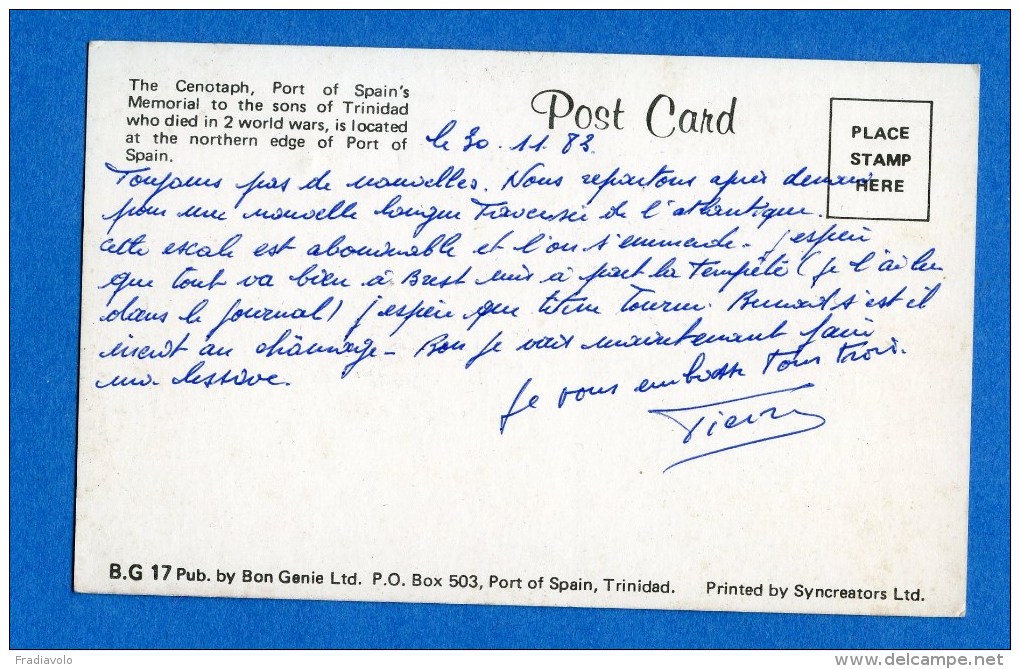 The Cenotaph, Port of Spain's
Memorial to the sons of Trinidad
who died in 2 world wars, is located
at the northern edge of Port of
Spain.
Post Card
PLACE
STAMP
HERE
le 30.11.83.
Toujours pas de nouvelles. Nous repartons après demain
pour une nouvelle longue Traversée de l'atlantique.
cette escale est abominable et l'on s'emmerde. j'espère
que tout va bien à Brest mis à part la Tempête (je l'ai lu
dans le journal) j'espère que tourne. s'est il
inscrit au chômage - Bon je vais maintenant faire
ma lessive.
je vous embrasse Tous Trois.
Pierre
B.G 17 Pub. by Bon Genie Ltd. P.O. Box 503, Port of Spain, Trinidad. Printed by Syncreators Ltd.
Fradiavolo
www.delcampe.net